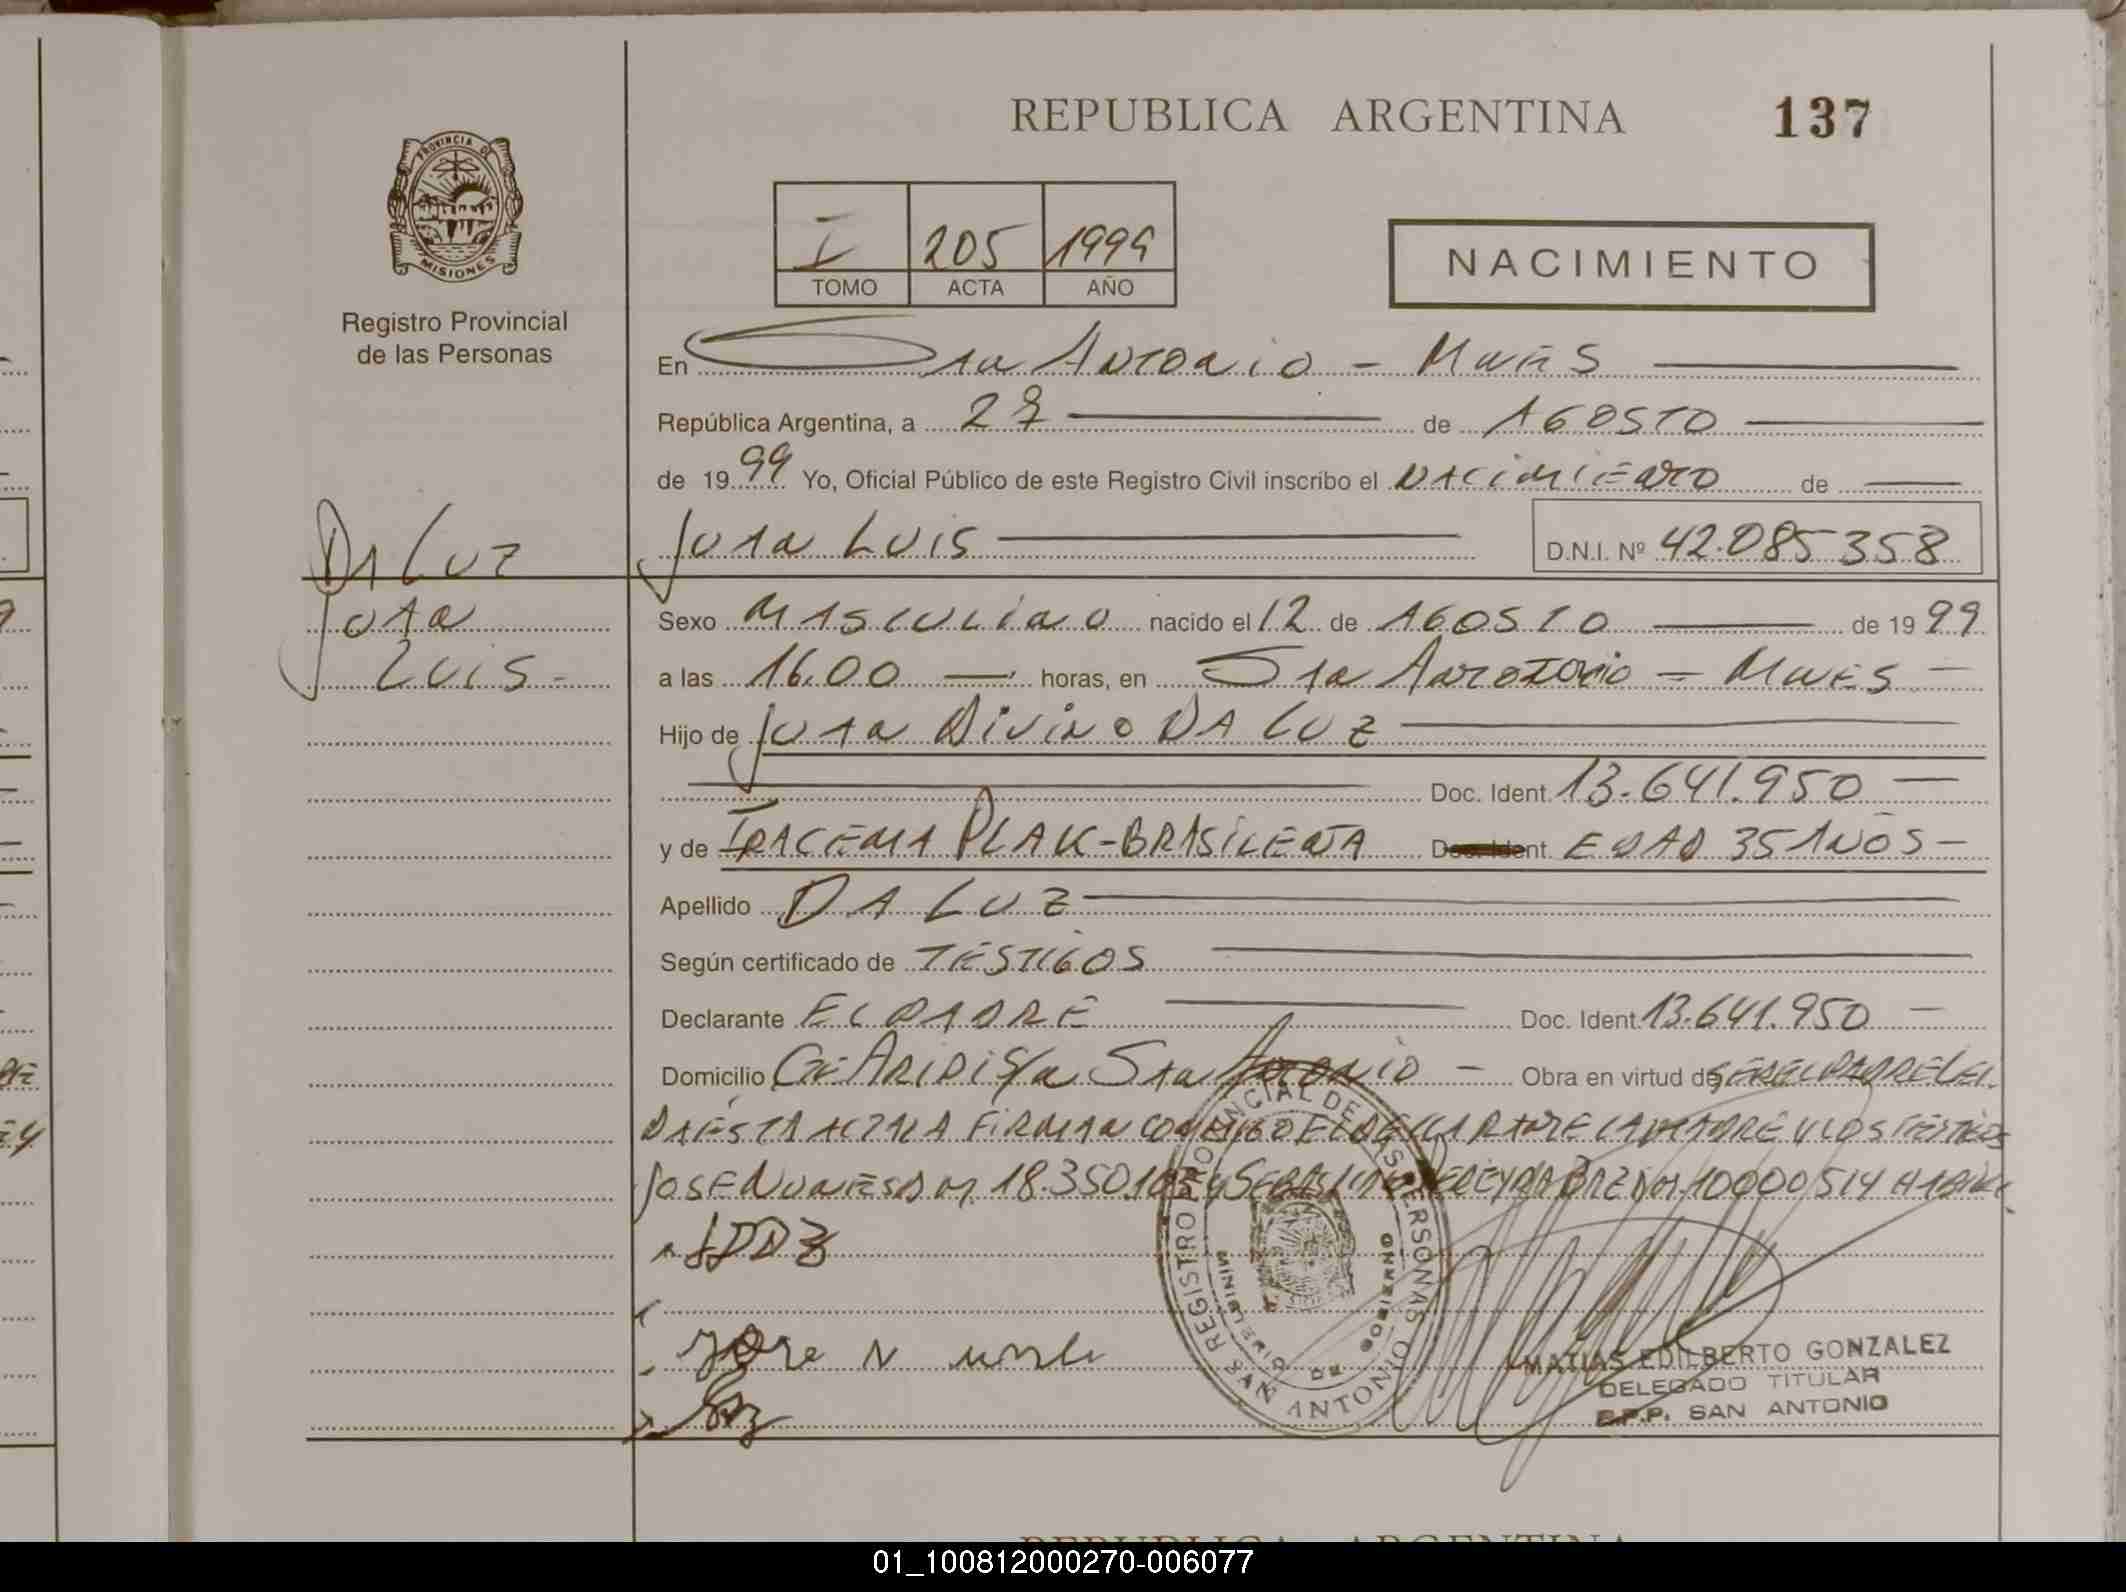 REPUBLICA ARGENTINA
137
PROVINCIA DE
MISIONES
Registro Provincial
de las Personas
I 205 1999
TOMO ACTA AÑO
NACIMIENTO
En San Antonio - Mnes
República Argentina, a 27 de AGOSTO
de 1999 Yo, Oficial Público de este Registro Civil inscribo el NACIMIENTO de
JUAN LUIS D.N.I. Nº 42.085358
DA LUZ
JUAN
LUIS-
Sexo MASCULINO nacido el 12 de AGOSTO de 1999
a las 16.00 horas, en San Antonio - Mnes -
Hijo de JUAN DIVINO DA LUZ
Doc. Ident. 13.641.950 -
y de IRACEMA PLAK-BRASILEÑA EDAD 35 AÑOS-
Apellido DA LUZ
Según certificado de TESTIGOS
Declarante EL PADRE Doc. Ident. 13.641.950 -
Domicilio San Antonio - Obra en virtud de SER EL PADRE LEI
DA ESTA ACTA LA FIRMAN CONMIGO EL DECLARANTE LA MADRE Y LOS TESTIGOS
JOSE NUNES 18.350.103 Y SEBASTIAN PEREYRA 10000514
REGISTRO PROVINCIAL DE LAS PERSONAS
SAN ANTONIO
MINISTERIO DE GOBIERNO
MATIAS EDILBERTO GONZALEZ
DELEGADO TITULAR
R.P.P. SAN ANTONIO
REPUBLICA ARGENTINA
01_100812000270-006077